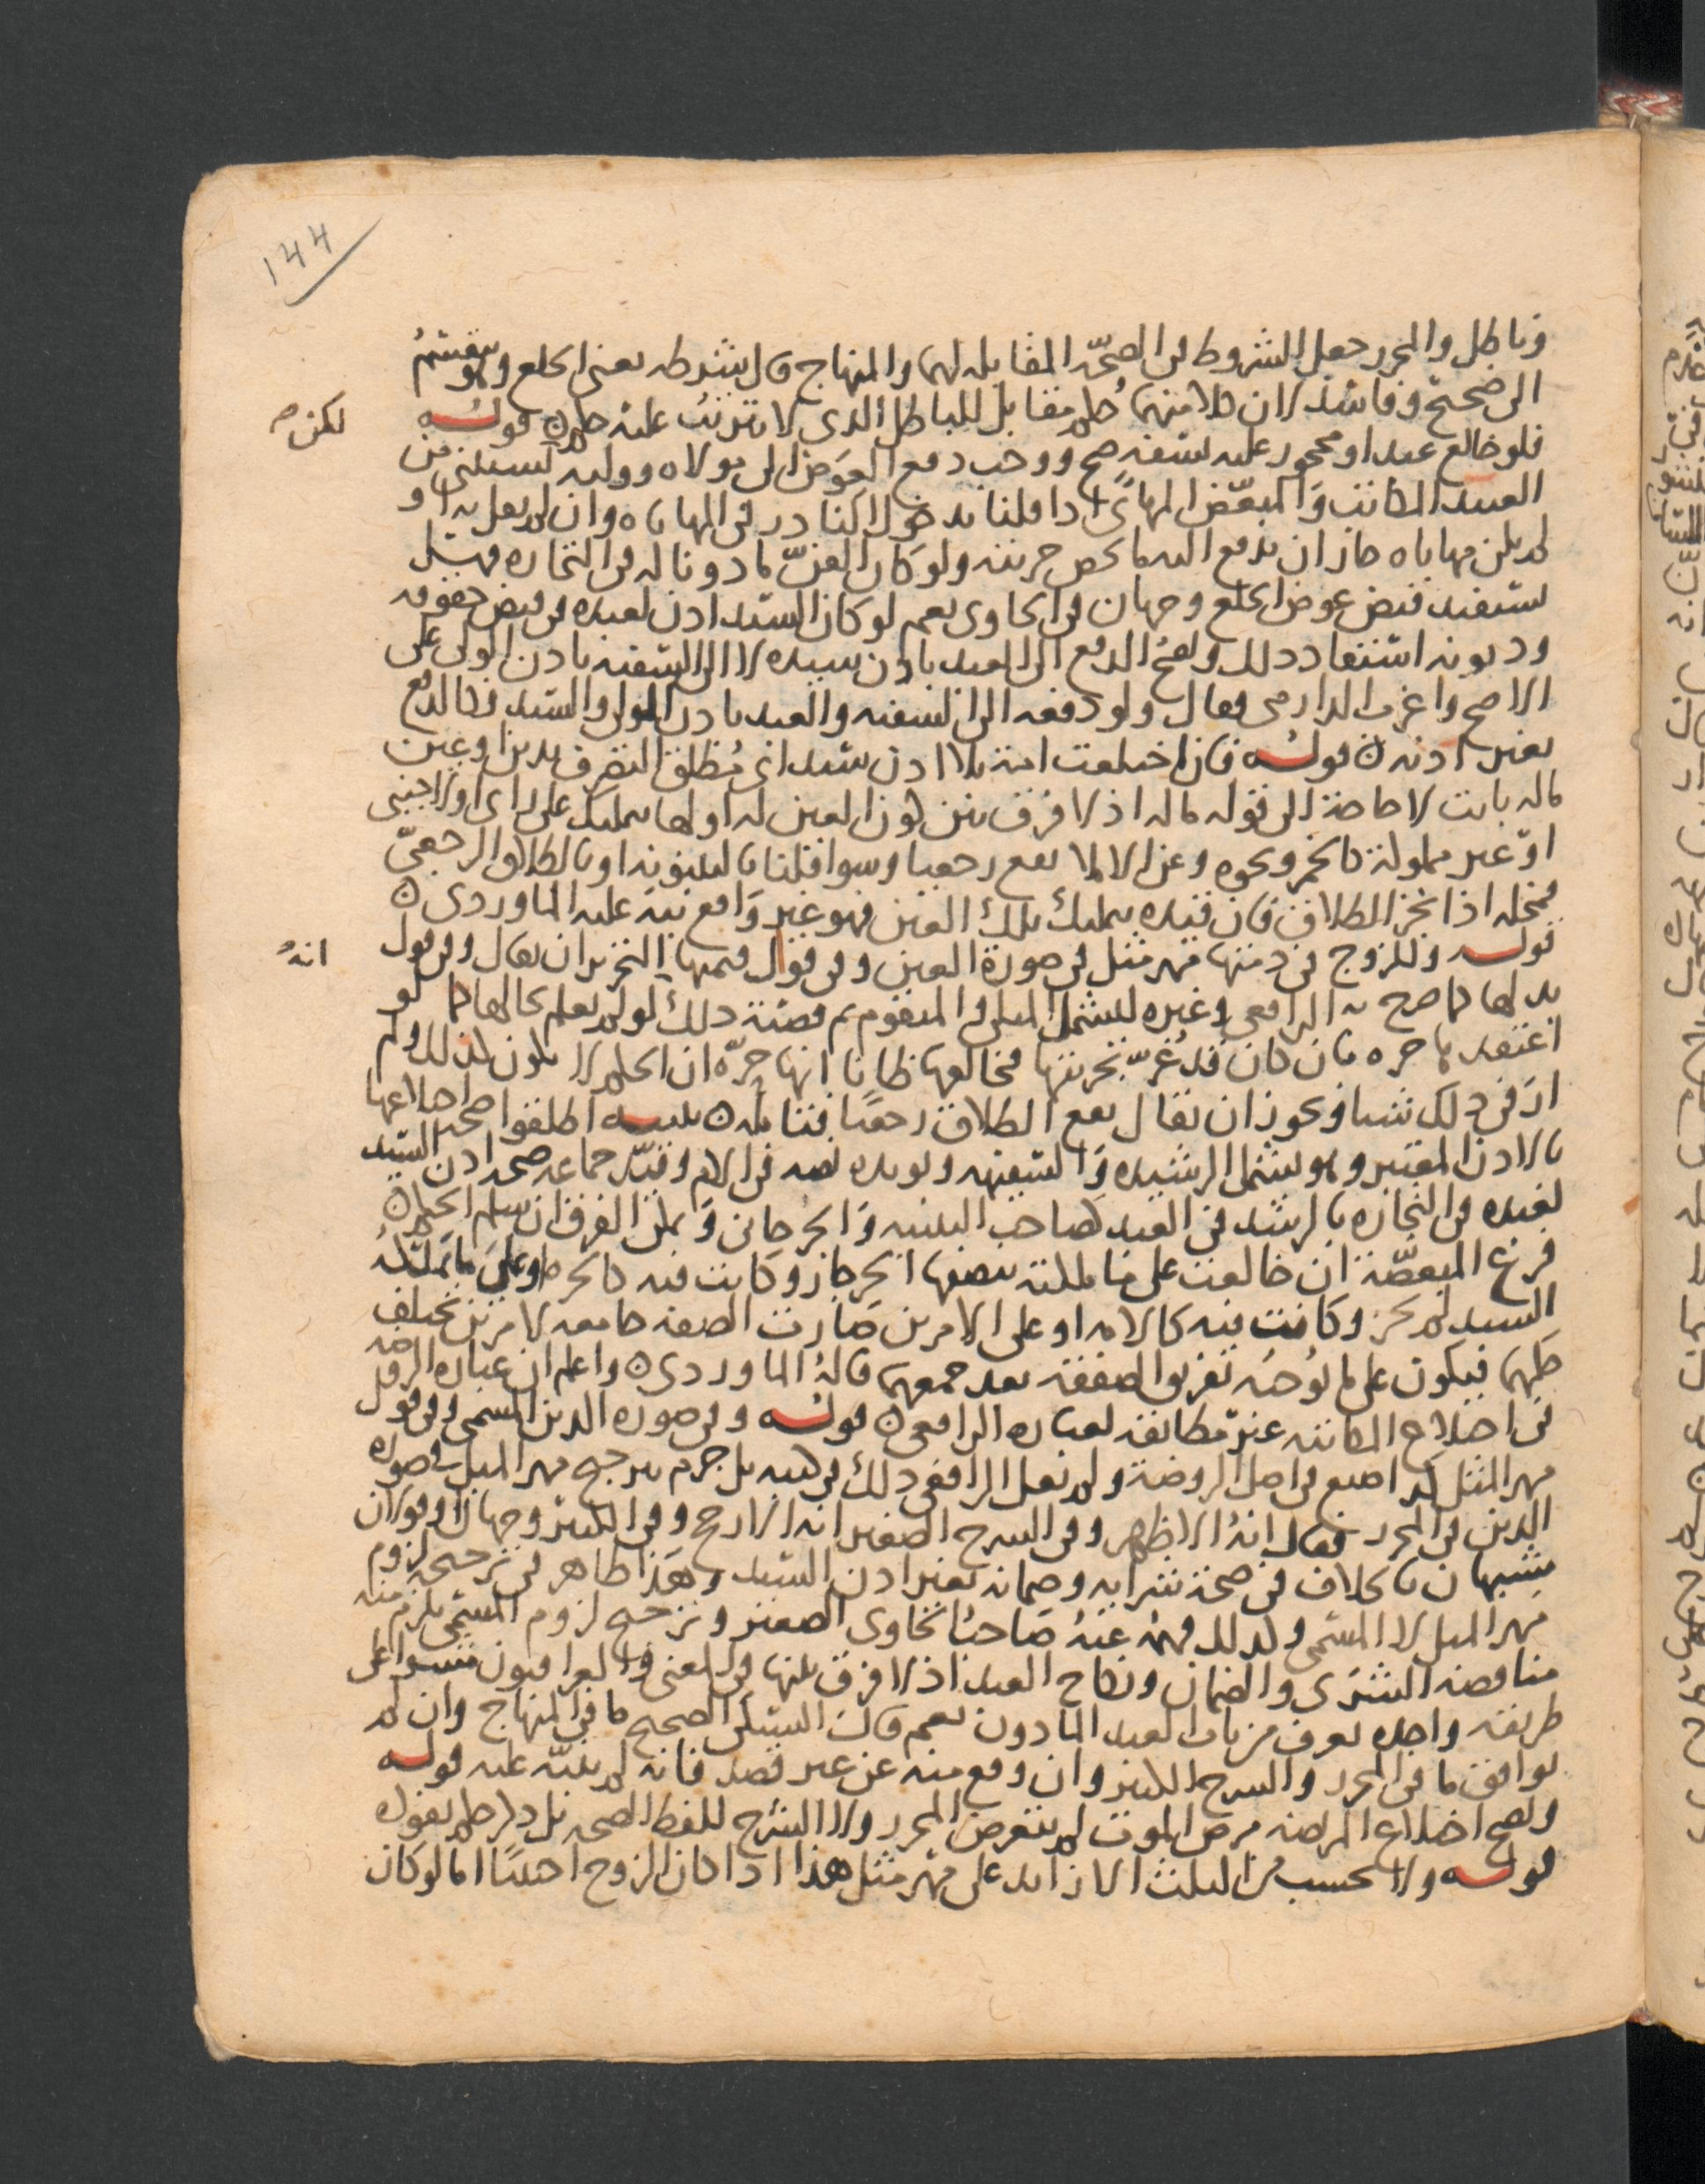 ١٤٤
وباطل والمحرر جعل الشروط في الصحة المقابله لهما والمنهاج قال شرطه يعني الخلع وهو ينقسم
الى صحيح وفاسد لان كلا منهما خلع مقابل للباطل الذي لا يترتب عليه حكم قوله
لكن صح
فلو خالع عبد او محجور عليه بسفه صح ووجب دفع العوض الى مولاه ووليه يستثنى من
العبد المكاتب والمبعض المهايأ اذا قلنا بدخول النادر في المهاياه وان لم نقل به او
لم يكن مهاياه جاز ان يدفع اليه ما يخص حريته ولو كان القن ماذونا له في التجاره فهل
يستفيد قبض عوض الخلع وجهان في الحاوي نعم لو كان السيد اذن لعبده في قبض حقوقه
وديونه استفاد ذلك ويصح الدفع الى العبد باذن سيده لا الى السفيه باذن الولي على
الاصح واغرب الدارمي فقال ولو دفعه الى السفيه والعبد باذن الولي والسيد فكالدفع
بغير اذنه قوله فان اختلعت امة بلا اذن سيد اي مطلق التصرف بدين او عين
ماله بانت لا حاجة الى قوله ماله اذ لا فرق بين كون العين له او لها بتمليك على راي او لاجنبي
او غير مملوكة كالخمر ونحوه وعن الاملا يقع رجعيا وسوا قلنا بالبينونه او بالطلاق الرجعي
فمحله اذا نجز الطلاق فان قيده بتمليك تلك العين فهو غير واقع نبه عليه الماوردي
قوله وللزوج في ذمتها مهر مثل في صورة العين وفي قول قيمتها التحرير ان يقال وفي قول
انه
بدلها كما صرح به الرافعي وغيره ليشمل المثلي والمتقوم ثم قضية ذلك لو لم يعلم بحالها كما لو
اعتقدها حره بان كان قد غر بحريتها فخالعها ظانا انها حره ان الحكم لا يكون كذلك ولم
ار في ذلك شيا ويجوز ان يقال يقع الطلاق رجعيا فتامله تنبيه اطلقوا صحة اختلاعها
بالاذن المعتبر وهو يشمل الرشيده والسفيهه ويويده نصه في الام وقيد جماعه صحه اذن السيد
لعبده في التجاره بالرشد في العبد كصاحب التنبيه والجرجاني ويمكن الفرق ان سلم الحكم
فرع المبعضة ان خالعت على ما ملكته ببعضها الحر جاز وكانت فيه كالحره او على ما يملكه
السيد لم يجز وكانت فيه كالامه او على الامرين صارت الصفقه جامعه لامرين مختلف
حكمهما فيكون على ما يوجبه تفريق الصفقه بعد جمعهما قاله الماوردي واعلم ان عبارة الروضه
في اختلاع المكاتبه غير مطابقه لعباره الرافعي قوله وفي صوره الدين المسمى وفي قول
مهر المثل كذا صنع في اصل الروضة ولم ينقل الرافعي ذلك في كتبه بل جزم بترجيح مهر المثل في صورة
الدين في المحرر فقال انه الاظهر وفي الشرح الصغير انه الارجح وفي الكبير وجهان او قولان
مشبهان بالخلاف في صحة شرايه وضمانه بغير اذن السيد وهذا ظاهر في ترجيح لزوم
مهر المثل لا المسمى ولذلك فهمه عنه صاحب الحاوي الصغير وترجيح لزوم المسمى يلزم منه
مناقضه الشرى والضمان ونكاح العبد اذ لا فرق بينها في المعنى والعراقيون مشوا على
طريقه واحده تعرف من باب العبد الماذون نعم قال السبكي الصحيح ما في المنهاج وان لم
يوافق ما في المحرر والشرح الكبير وان وقع منه عن غير قصد فانه لم ينبه عليه قوله
ويصح اختلاع المريضه مرض الموت لم يتعرض المحرر ولا الشرح للفظ الصحه بل ذكر حكم نفوذه
قوله ولا يحسب من الثلث الا زائد على مهر مثل هذا اذا كان الزوج اجنبيا اما لو كان